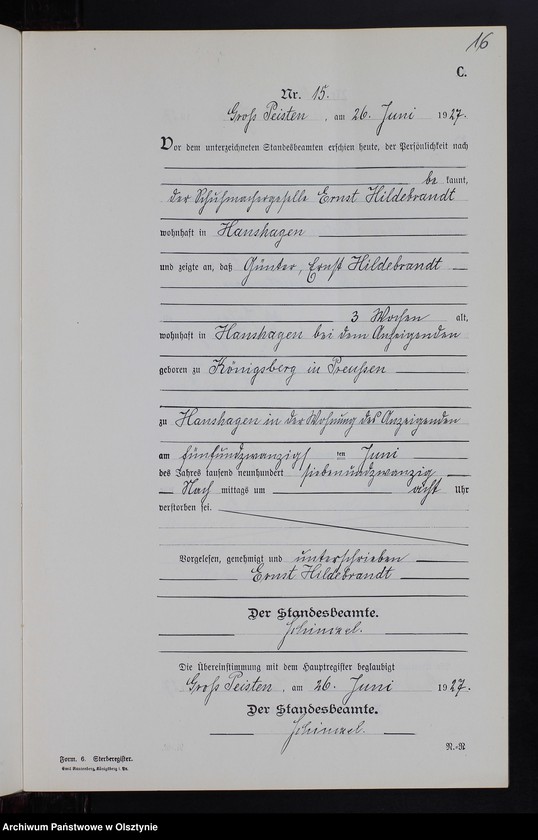 16
C.
Nr. 15.
Groß Peisten, am 26. Juni 1927.
Vor dem unterzeichneten Standesbeamten erschien heute, der Persönlichkeit nach
be kannt,
der Schuhmachergeselle Ernst Hildebrandt
wohnhaft in Hanshagen
und zeigte an, daß Günter, Ernst Hildebrandt
3 Wochen alt,
wohnhaft in Hanshagen bei dem Anzeigenden
geboren zu Königsberg in Preußen
zu Hanshagen in der Wohnung des Anzeigenden
am fünfundzwanzigs ten Juni
des Jahres tausend neunhundert siebenundzwanzig
Nach mittags um acht Uhr
verstorben sei.
Vorgelesen, genehmigt und unterschrieben
Ernst Hildebrandt
Der Standesbeamte.
Schimzel.
Die Übereinstimmung mit dem Hauptregister beglaubigt
Groß Peisten, am 26. Juni 1927.
Der Standesbeamte.
Schimzel.
R.-R
Form. 6. Sterberegister.
Archiwum Państwowe w Olsztynie